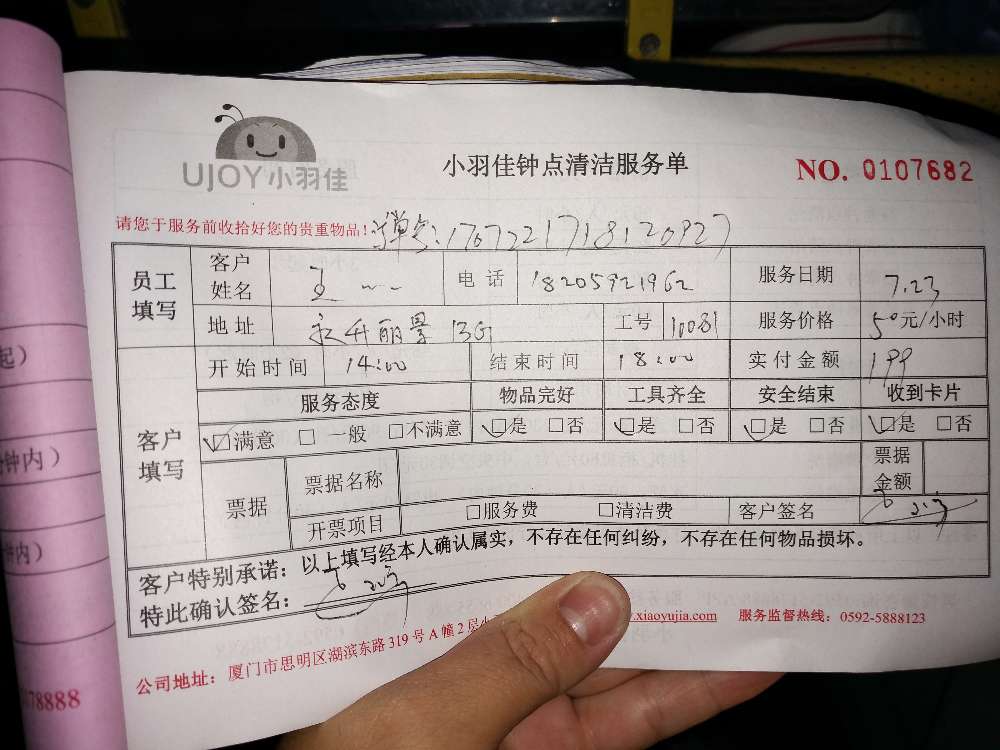 UJOY小羽佳
小羽佳钟点清洁服务单
NO. 0107682
请您于服务前收拾好您的贵重物品!
单号:1707221718120927
员工填写 客户姓名 王 电话 18205921962 服务日期 7.23
地址 永升丽景13G 工号 服务价格 50元/小时
客户填写 开始时间 14:00 结束时间 18:00 实付金额 199
服务态度 物品完好 工具齐全 安全结束 收到卡片
☑满意 □一般 □不满意 ☑是 □否 ☑是 □否 ☑是 □否 ☑是 □否
票据 票据名称 票据金额
开票项目 □服务费 □清洁费 客户签名
客户特别承诺:以上填写经本人确认属实,不存在任何纠纷,不存在任何物品损坏。
特此确认签名:
.xiaoyujia.com 服务监督热线:0592-5888123
公司地址:厦门市思明区湖滨东路319号A幢2层
起)
钟内)
钟内)
78888